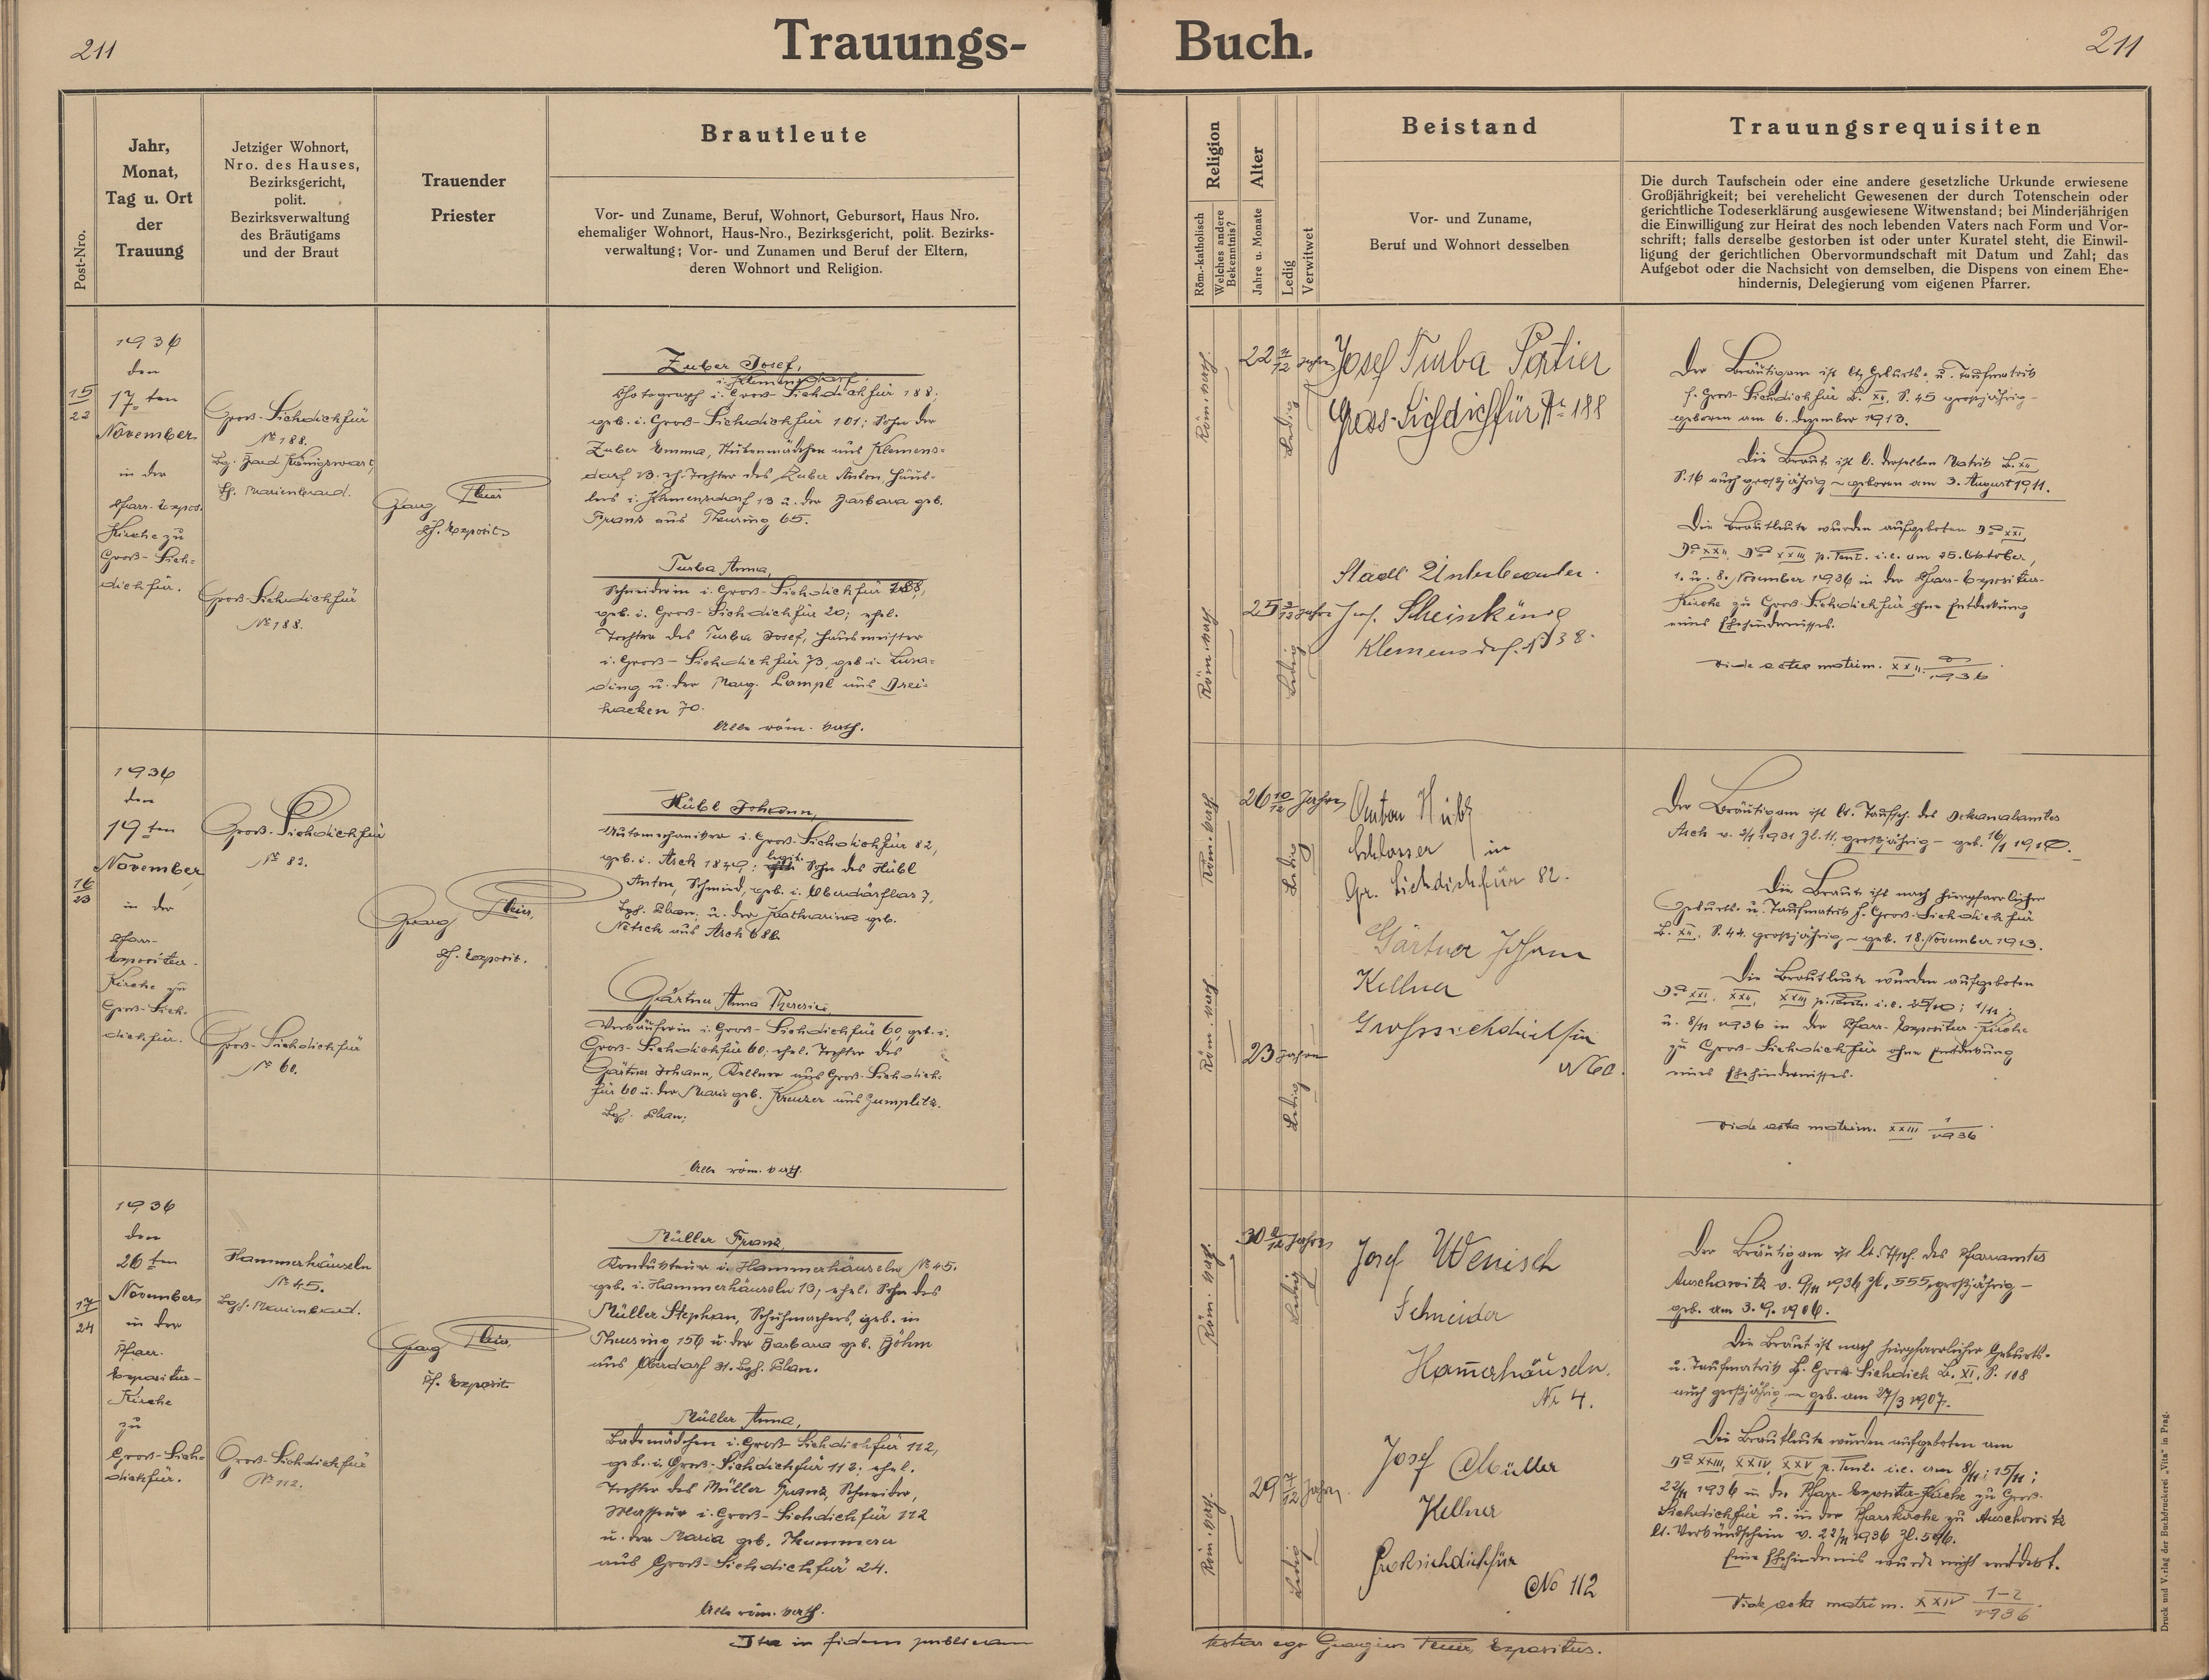 211
Trauungs-
Buch.
211
Post-Nro.
Jahr,
Monat,
Tag u. Ort
der
Trauung
Jetziger Wohnort,
Nro. des Hauses,
Bezirksgericht,
polit.
Bezirksverwaltung
des Bräutigams
und der Braut
Trauender
Priester
Brautleute
Vor- und Zuname, Beruf, Wohnort, Geburtsort, Haus Nro.
ehemaliger Wohnort, Haus-Nro., Bezirksgericht, polit. Bezirks-
verwaltung; Vor- und Zunamen und Beruf der Eltern,
deren Wohnort und Religion.
Religion
Röm.-katholisch
Welches andere
Bekenntnis?
Alter
Jahre u. Monate
Ledig
Verwitwet
Beistand
Vor- und Zuname,
Beruf und Wohnort desselben
Trauungsrequisiten
Die durch Taufschein oder eine andere gesetzliche Urkunde erwiesene
Großjährigkeit; bei verehelicht Gewesenen der durch Totenschein oder
gerichtliche Todeserklärung ausgewiesene Witwenstand; bei Minderjährigen
die Einwilligung zur Heirat des noch lebenden Vaters nach Form und Vor-
schrift; falls derselbe gestorben ist oder unter Kuratel steht, die Einwil-
ligung der gerichtlichen Obervormundschaft mit Datum und Zahl; das
Aufgebot oder die Nachsicht von demselben, die Dispens von einem Ehe-
hindernis, Delegierung vom eigenen Pfarrer.
15
22
1936
den
17. ten
November
in der
Pfarr-Expos.
Kirche zu
Groß-Sich-
dichfür.
Groß-Sichdichfür
№ 188.
Königswart
Marienbad.
Groß-Sichdichfür
№ 188.
Georg
Pf. Exposit.
Zuber Josef,
Photograph i. Groß-Sichdichfür 188;
geb. i. Groß-Sichdichfür 101; Sohn der
Zuber Emma, Stubenmädchen aus Klemens-
dorf 13. eh. Tochter des Zuber Anton, Häus-
lers i. Klemensdorf 13 u. der Barbara geb.
Franz aus Theusing 65.
Turba Anna,
Schneiderin i. Groß-Sichdichfür 188,
geb. i. Groß-Sichdichfür 20; ehel.
Tochter des Turba Josef, Hausmeister
i. Groß-Sichdichfür 73, geb. i. Lusa-
ding u. der Marg. Lampl aus Drei-
hacken 70.
Alle röm. kath.
Röm. kath.
22 Jahre
Ledig
Röm. kath.
25 Jahre
Ledig
Josef Turba Portier
Gross-Sichdichfür № 188
Stadl. Unterbeamter.
Jos. Scheinkönig
Klemensdorf. № 38.
Der Bräutigam ist lt. Geburts- u. Taufmatrik
f. Groß-Sichdichfür B. XI, S. 45 großjährig -
geboren am 6. Dezember 1913.
Die Braut ist lt. derselben Matrik B. XII
S. 16 auch großjährig - geboren am 3. August 1911.
Die Brautleute wurden aufgeboten Da XXI,
Da XXII, Da XXIII p. Pent. i. e. am 25. Oktober,
1. u. 8. November 1936 in der Pfarr-Expositur-
Kirche zu Groß-Sichdichfür ohne Entdeckung
eines Ehehindernisses.
16
23
1936
den
19 ten
November
in der
Pfarr-
Expositur-
Kirche zu
Groß-Sich-
dichfür.
Groß-Sichdichfür
№ 82.
Groß-Sichdichfür
№ 60.
Georg
Pf. Exposit.
Hübl Johann,
Automechaniker i. Groß-Sichdichfür 82,
geb. i. Asch 1849; legit. Sohn des Hübl
Anton, Schmied, geb. i. Oberdorf 7,
Bgh. Plan, u. der Katharina geb.
Netsch aus Asch 688.
Gärtner Anna Theresia
Verkäuferin i. Groß-Sichdichfür 60, geb. i.
Groß-Sichdichfür 60; ehel. Tochter des
Gärtner Johann, Kellner aus Groß-Sichdich-
für 60 u. der Marie geb. Kreuzer aus Zumplitz.
Bgh. Plan.
Alle röm. kath.
Röm. kath.
26 10/12 Jahre
Ledig
Röm. kath.
23 Jahre
Ledig
Anton Hübl
Schlosser in
Gr. Sichdichfür 82.
Gärtner Johann
Kellner
Grosssichdichfür
№ 60.
Der Bräutigam ist lt. Taufsch. des Dekanalamtes
Asch v. 2/1 1931 Zl. 11, großjährig - geb. 16/1 1910.
Die Braut ist nach hierpfarrlicher
Geburts- u. Taufmatrik f. Groß-Sichdichfür
B. XII, S. 44. großjährig - geb. 18. November 1913.
Die Brautleute wurden aufgeboten
Da XXI, XXII, XXIII p. Pent. i. e. 25/10; 1/11;
u. 8/11 1936 in der Pfarr-Expositur-Kirche
zu Groß-Sichdichfür ohne Entdeckung
eines Ehehindernisses.
Vide acta matrim. XXIII 1/1936
17
24
1936
den
26 ten
November
in der
Pfarr-
Expositur-
Kirche
zu
Groß-Sich-
dichfür.
Hammerhäuseln
№ 45.
Bgh. Marienbad.
Groß-Sichdichfür
№ 112.
Georg
Pf. Exposit.
Müller Franz,
Kondukteur i. Hammerhäuseln № 45.
geb. i. Hammerhäuseln 13, ehel. Sohn des
Müller Stephan, Schuhmachers, geb. in
Theusing 156 u. der Barbara geb. Böhm
aus Oberdorf 31. Bgh. Plan.
Müller Anna,
Bademädchen i. Groß-Sichdichfür 112,
geb. i. Groß-Sichdichfür 112; ehel.
Tochter des Müller Franz, Schneider,
Masseur i. Groß-Sichdichfür 112
u. der Maria geb. Thummerer
aus Groß-Sichdichfür 24.
Alle röm. kath.
Röm. kath.
30 Jahre
Ledig
Röm. kath.
29 Jahre
Ledig
Josef Wenisch
Schneider
Hammerhäuseln.
Nr 4.
Josef Müller
Kellner
Großsichdichfür
No 112
Der Bräutigam ist lt. Tfsch. des Pfarramtes
Auschowitz v. 9/11 1936 Zl. 555, großjährig -
geb. am 3. 9. 1906.
Die Braut ist nach hierpfarrlicher Geburts-
u. Taufmatrik f. Groß-Sichdich B. XI, S. 108
auch großjährig - geb. am 27/3 1907.
Die Brautleute wurden aufgeboten am
Da XXIII, XXIV, XXV p. Pent. i. e. am 8/11; 15/11;
22/11 1936 in der Pfarr-Expositur-Kirche zu Groß-
Sichdichfür u. in der Pfarrkirche zu Auschowitz
lt. Verkündschein v. 22/11 1936 Zl. 596.
Eine Ehehindernis wurde nicht entdeckt.
Vide acta matrim. XXIV 1-2/1936
Ita in fidem publicam
testor ego Georgius Expositus.
Druck und Verlag der Buchdruckerei „Vita" in Prag.